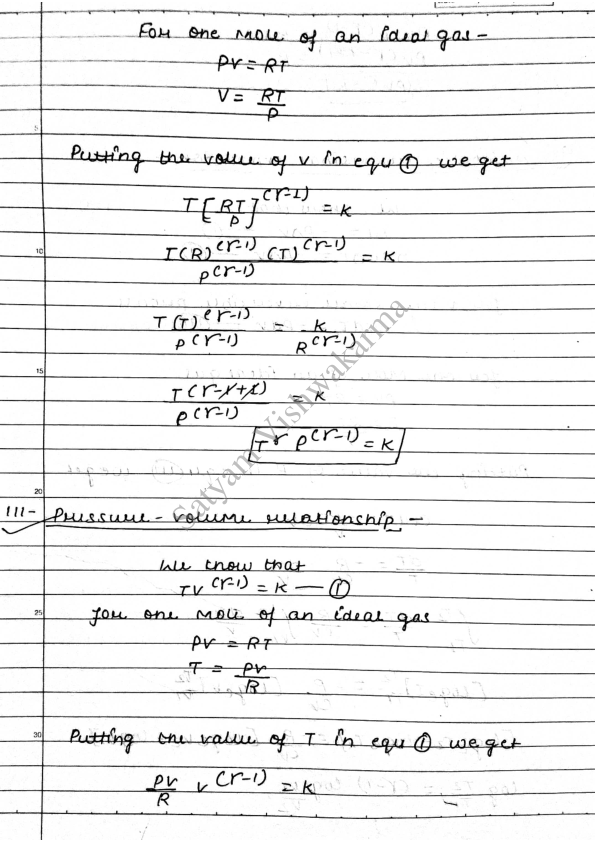 For one mole of an ideal gas -
PV = RT
V = RT/P
5
Putting the value of V in equ ① we get
T[RT/P]^(r-1) = K
10
T(R)^(r-1) (T)^(r-1) / P^(r-1) = K
T(T)^(r-1) / P^(r-1) = K / R^(r-1)
15
T^(r-1+1) / P^(r-1) = K
T^r P^(r-1) = K
20
III- Pressure - volume relationship -
We know that
TV^(r-1) = K — ①
25
for one mole of an ideal gas
PV = RT
T = PV/R
30
Putting the value of T in equ ① we get
PV/R V^(r-1) = K
Satyam Vishwakarma